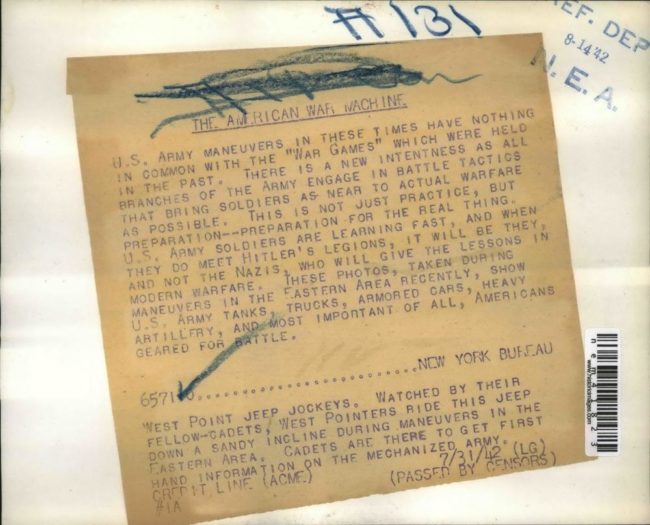 #131
REF. DEP
8-14'42
N.E.A.
THE AMERICAN WAR MACHINE
U.S. ARMY MANEUVERS IN THESE TIMES HAVE NOTHING
IN COMMON WITH THE "WAR GAMES" WHICH WERE HELD
IN THE PAST. THERE IS A NEW INTENTNESS AS ALL
BRANCHES OF THE ARMY ENGAGE IN BATTLE TACTICS
THAT BRING SOLDIERS AS NEAR TO ACTUAL WARFARE
AS POSSIBLE. THIS IS NOT JUST PRACTICE, BUT
PREPARATION--PREPARATION FOR THE REAL THING.
U.S. ARMY SOLDIERS ARE LEARNING FAST, AND WHEN
THEY DO MEET HITLER'S LEGIONS, IT WILL BE THEY,
AND NOT THE NAZIS, WHO WILL GIVE THE LESSONS IN
MODERN WARFARE. THESE PHOTOS, TAKEN DURING
MANEUVERS IN THE EASTERN AREA RECENTLY, SHOW
U.S. ARMY TANKS, TRUCKS, ARMORED CARS, HEAVY
ARTILLERY, AND MOST IMPORTANT OF ALL, AMERICANS
GEARED FOR BATTLE.
NEW YORK BUREAU
WEST POINT JEEP JOCKEYS. WATCHED BY THEIR
FELLOW-CADETS, WEST POINTERS RIDE THIS JEEP
DOWN A SANDY INCLINE DURING MANEUVERS IN THE
EASTERN AREA. CADETS ARE THERE TO GET FIRST
HAND INFORMATION ON THE MECHANIZED ARMY.
CREDIT LINE (ACME) 7/31/42 (LG)
#1A (PASSED BY CENSORS)